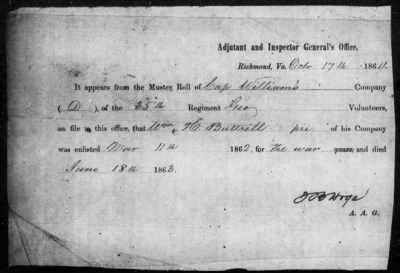 Adjutant and Inspector General's Office,
Richmond, Va. Octo 17th 1864.
It appears from the Muster Roll of Cap Williams Company
( D ), of the 35th Regiment Geo Volunteers,
on file in this office, that Wm H. Buttrill pri of his Company
was enlisted Mar 11th 1862, for the war and died
June 18th 1862.
A. A. G.